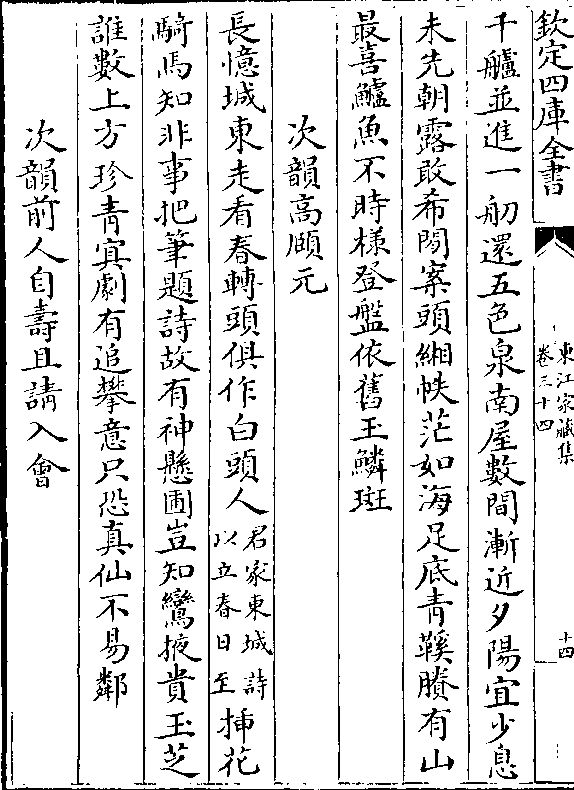 欽定四庫全書
東江家藏集
卷三十四
十四
千艫並進一舠還五色泉南屋數間漸近夕陽宜少息
未先朝露敢希閒案頭緗帙茫如海足底青鞵賸有山
最喜鱸魚不時様登盤依舊玉鱗斑
次韻高頤元
長憶城東走看春轉頭俱作白頭人君家東城詩以立春日至揷花
騎馬知非事把筆題詩故有神懸圃豈知鸞掖貴玉芝
誰數上方珍青冥劇有追攀意只恐真仙不易鄰
次韻前人自壽且請入會